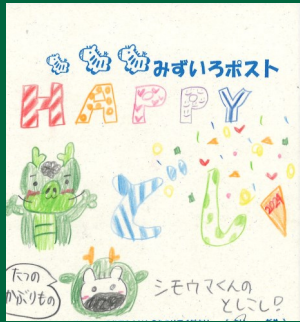 みずいろポスト
HAPPY
どし
2024
たつの
かぶりもの
シモウマくんの
としこし!